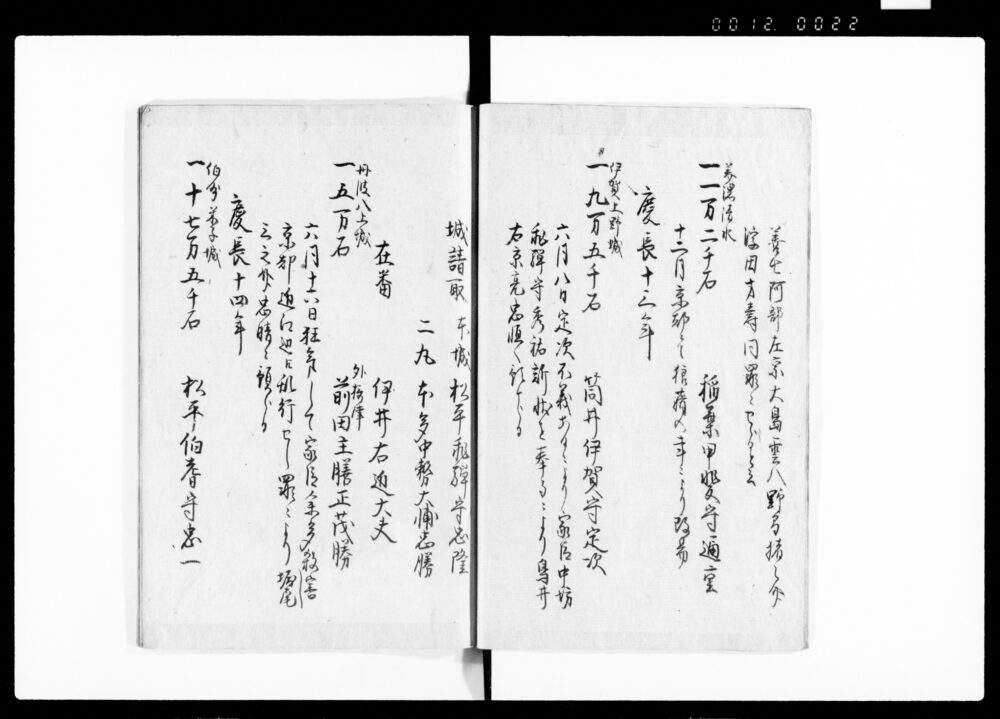 0012. 0022
養七阿部左京大島雲八野間猪之介
津田才壽同罪にせらると云
美濃清水
一一万二千石 稲葉甲斐守通重
十二月京都にて狼藉の事により改易
慶長十三年
伊賀上野城
一九万五千石 筒井伊賀守定次
六月八日定次不義あるにより家臣中坊
飛騨守秀祐訴状を奉るにより鳥井
右京亮忠恒へ預けらる
城請取 本城 松平飛騨守忠隆
二ノ丸 本多中務大輔忠勝
在番 伊井右近大夫
外様津
丹波八上城
一五万石 前田主膳正茂勝
六月十六日狂気して家臣余多殺害
京都近江辺乱行せし罪により堀尾
忠晴に預けらる
慶長十四年
伯州米子城
一十七万五千石 松平伯耆守忠一